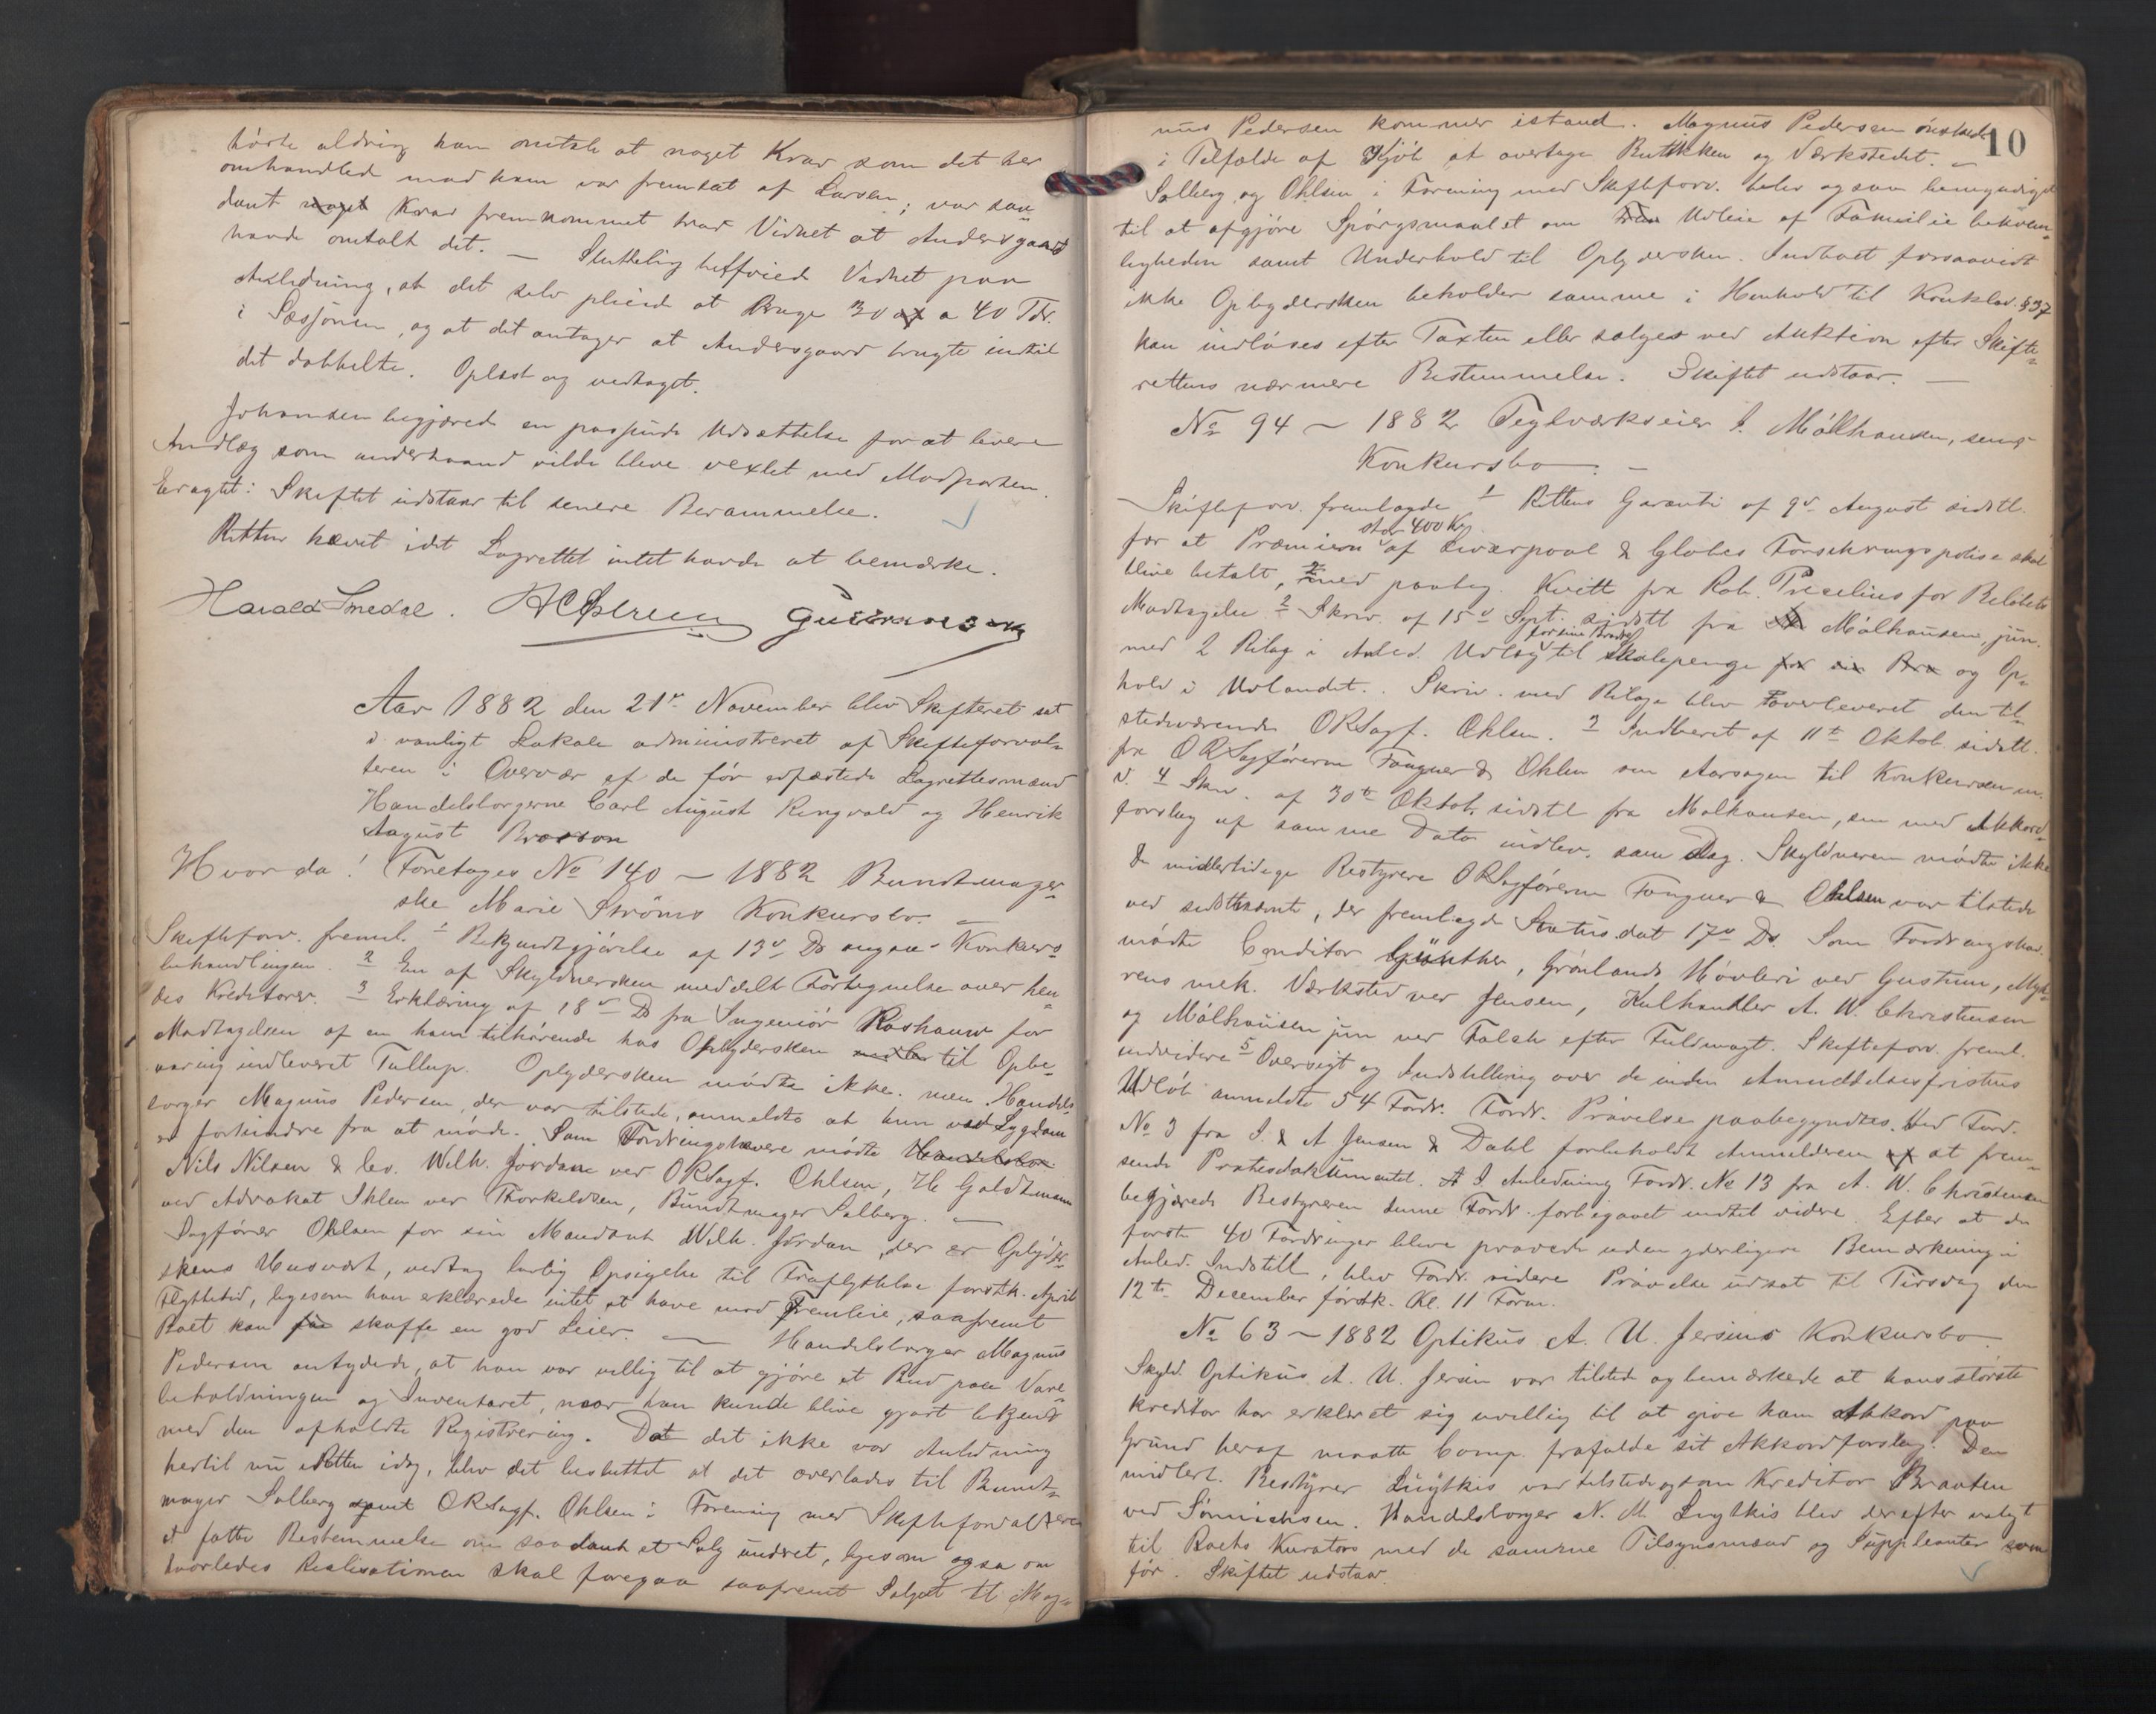 hørte aldrig ham omtale at noget Krav som det her
omhandlede mod ham var fremsat af Larsen; var saa-
dant noget Krav fremkommet troer Vidnet at Andersgaard
havde omtalt det. — Sluttelig tilføied Vidnet paa
Anledning, at det selv pleiede at bruge 30 af a 40 Tdr.
i Sæsjonen, og at det antager at Andersgaard brugte indtil
det dobbelte. Oplæst og vedtaget.
Johannsen begjærede en passende Udsættelse for at levere
Indlæg som underhaand vilde blive vexlet med Modparten.
Eragtet: Skiftet udstaar til senere Berammelse.
Retten hævet idet Lagrettet intet havde at bemærke.
Harald Smedal.
Aar 1882 den 21de November blev Skifteret sat
i vanligt Lokale administreret af Skifteforval-
teren i Overvær af de før edfæstede Lagrettesmænd
Handelsborgerne Carl August Ringvald og Henrik
August
Hvor da! Foretages No 140 — 1882 Bundtmager-
ske Marie Strøms Konkursbo. —
Skifteforv. freml. 1 Bekjendtgjørelse af 13de Ds angaa. Konkurs-
behandlingen. 2 En af Skyldnersken meddelt Fortegnelse over hen-
des Kreditorer. 3 Erklæring af 18de Ds fra Ingeniør Roshauw for
Modtagelsen af en ham tilhørende hos Opbydersken til Opbe-
varing indleveret Tullup. Opbydersken mødte ikke. men Handels-
borger Magnus Pedersen, der var tilstede, anmeldte at hun ved Sygdom
er forhindre fra at møde. Som Fordringshavere mødte
Nils Nilsen & Co. Wilh. Jordan ved ORSagf. Ohlsen, H. Goldtmann
ved Advokat Ihlen ved Thorkildsen, Bundtmager Solberg. —
Sagfører Ohlsen for sin Mandant Wilh. Jordan, der er Opbyder-
skens Husvært, vedtog lovlig Opsigelse til Fraflyttelse førstk. April
Flyttetid, ligesom han erklærede intet at have mod Fremleie, saafremt
Boet kan faa skaffe en god Leier. — Handelsborger Magnus
Pedersen antydede, at han var villig til at gjøre et Bud paa Vare-
beholdningen og Inventaret, naar han kunde blive gjort bekjendt
med den afholdte Registrering. Dat det ikke var Anledning
hertil nu i Retten idag, blev det besluttet at det overlades til Bundt-
mager Solberg samt ORSagf. Ohlsen i Forening med Skifteforvalteren
at fatte Bestemmelse om saadant et Salg undret, ligesom ogsaa om
hvorledes Realisationen skal foregaa saafremt Salget til Mag-
10
nus Pedersen kommer istand. Magnus Pedersen ønskede
i Tilfælde af Kjøb at overtage Butikken og Værkstedet. —
Solberg og Ohlsen i Forening med Skifteforv. blev ogsaa bemyndiget
til at afgjøre Spørgsmaalet om Udleie af Familiebekvem-
ligheden samt Underhold til Opbydersken. Indboet forsaavidt
ikke Opbydersken beholder samme i Henhold til Konklov. §37
kan indløses efter Taxten eller sælges ved Auktion efter Skifte-
rettens nærmere Bestemmelse. Skiftet udstaar. —
No 94 — 1882 Teglværkseier J. Mølhausen, sens
Konkursbo. —
Skifteforv. fremlagde 1 Rettens Garanti af 9de August sidstl.
for at Præmien stor 400 Kr. af Liverpool & Globes Forsikringspolise skal
blive betalt, med paateg. Kvitt fra Rob. for Beløbets
Modtagelse 2 Skriv. af 15de Sept. sidstl fra Mølhausen jun.
med 2 Bilag i Anled. Udlæg for sine Brødre til Skolepenge og Op-
hold i Udlandet. Skriv. med Bilage blev overleveret den til-
stedeværende ORSagf. Ohlsen. 3 Indberet af 11te Oktob. sidstl.
fra ORSagførerne Fougner & Ohlsen om Aarsagen til Konkursen m.
v. 4 Skriv. af 30te Oktob. sidstl fra Mølhausen, sen med Akkord-
forslag af samme Dato indlev. sam Dag. Skyldneren mødte ikke
De midlertidige Bestyrere ORSagførerne Fougner & Ohlsen var tilstede
ved sidstnævnte, der fremlagde Status dat 17de Ds. Som Fordringshav.
mødte Conditor Günther, Grønlands Høvleri ved Gustum, Myh-
rens mek. Værksted ved Jensen, Kulhandler A. W. Christensen
og Mølhausen jun ved Falch efter Fuldmagt. Skifteforv. freml.
endvidere 5 Oversigt og Indstilling over de inden Anmeldelsesfristens
Udløb anmeldte 54 Fordr. Fordr. Prøvelse paabegyndtes. Ved Ford.
No 3 fra J. & A. Jensen & Dahl forbeholdt Anmelderen at frem-
sende Protestdokumentet. I Anledning Fordr. No 13 fra A. W. Christensen
begjærede Bestyreren denne Fordr. forbigaaet indtil videre. Efter at de
første 40 Fordringer bleve prøvede uden yderligere Bemærkning i
Anled. Indstill, blev Fordr. videre Prøvelse udsat til Tirsdag den
12te December førstk. Kl. 11 Form.
No 63 — 1882 Optikus A. U. Jersins Konkursbo
Skyld. Optikus A. U. Jersin var tilstede og bemærkede at hans største
Kreditor har erklæret sig uvillig til at give ham Akkord paa
Grund heraf maatte Comp. frafalde sit Akkordforslag. Den
midlert. Bestyrer Lugtkis var tilstede og som Kreditor Braaten
ved Sønnichsen. Handelsborger N. M. Lugtkis blev derefter valgt
til Boets Kurator med de samme Tilsynsmænd og Suppleanter som
før. Skiftet udstaar.